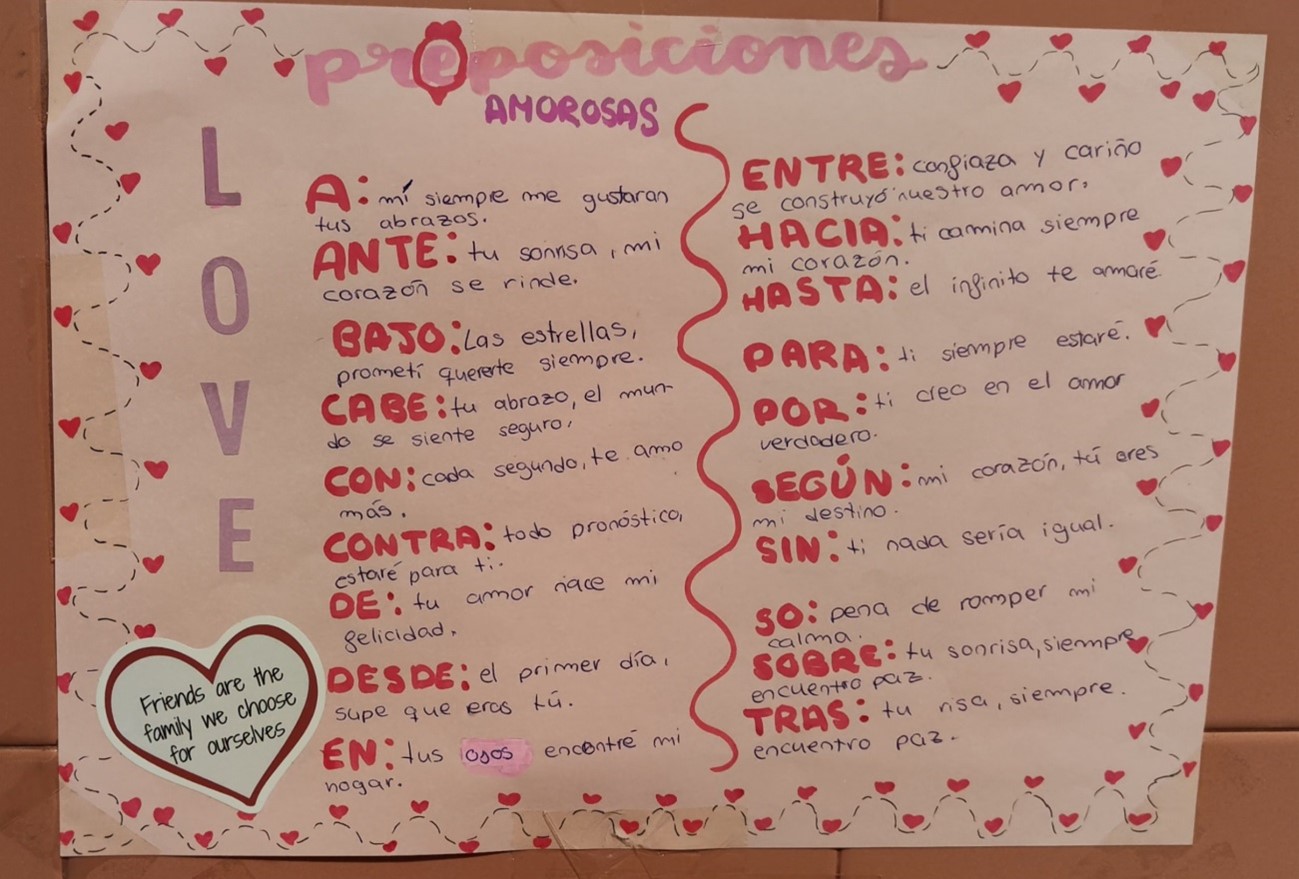 preposiciones
AMOROSAS
LOVE
A: mí siempre me gustaran
tus abrazos.
ANTE: tu sonrisa, mi
corazón se rinde.
BAJO: Las estrellas,
prometí quererte siempre.
CABE: tu abrazo, el mun-
do se siente seguro.
CON: cada segundo, te amo
más.
CONTRA: todo pronóstico,
estaré para ti.
DE: tu amor nace mi
felicidad.
DESDE: el primer día,
supe que eras tú.
EN: tus ojos encontré mi
hogar.
ENTRE: confiaza y cariño
se construyó nuestro amor.
HACIA: ti camina siempre
mi corazón.
HASTA: el infinito te amaré
PARA: ti siempre estaré.
POR: ti creo en el amor
verdadero.
SEGÚN: mi corazón, tú eres
mi destino.
SIN: ti nada sería igual.
SO: pena de romper mi
calma.
SOBRE: tu sonrisa, siempre
encuentro paz.
TRAS: tu risa, siempre.
encuentro paz.
Friends are the
family we choose
for ourselves